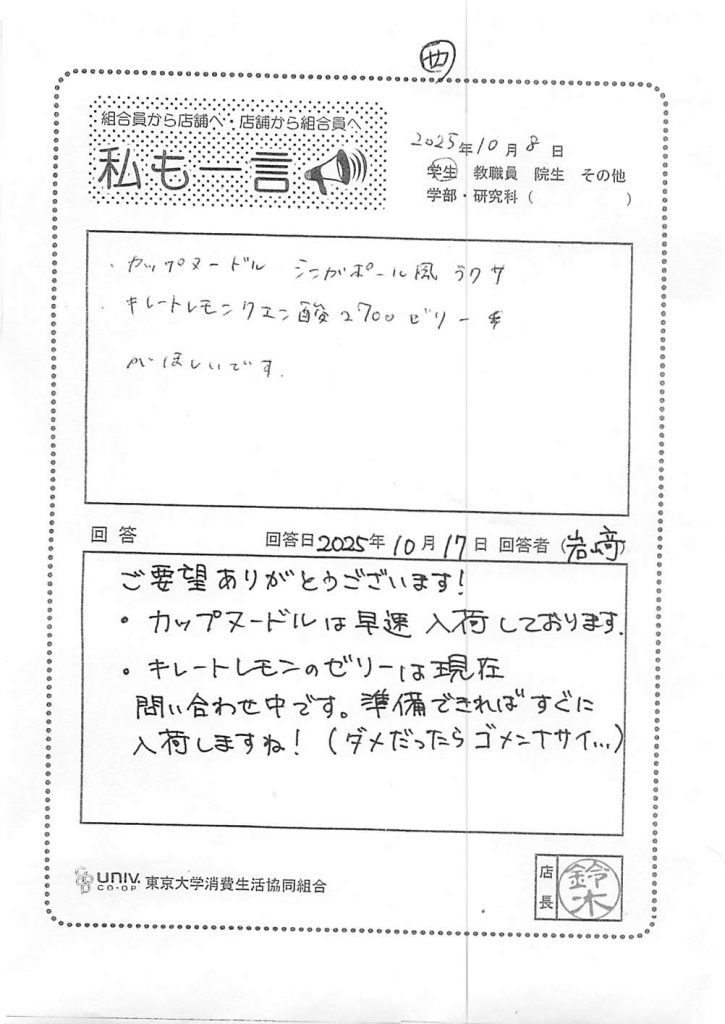 西
組合員から店舗へ・店舗から組合員へ
私も一言
2025年10月8日
学生 教職員 院生 その他
学部・研究科( )
・カップヌードル シンガポール風ラクサ
・キレートレモンクエン酸2700ゼリー
がほしいです.
回答 回答日2025年10月17日 回答者(岩崎)
ご要望ありがとうございます!
・カップヌードルは早速入荷しております.
・キレートレモンのゼリーは現在
問い合わせ中です。準備できればすぐに
入荷しますね!(ダメだったらゴメンナサイ...)
UNIV. CO-OP 東京大学消費生活協同組合
店長 鈴木